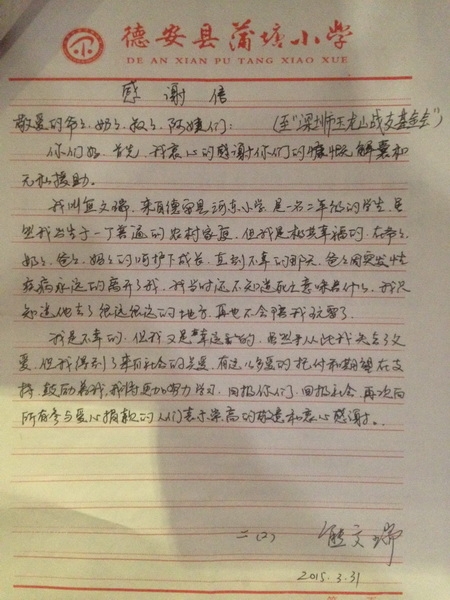 德安县蒲塘小学
DE AN XIAN PU TANG XIAO XUE
感谢信
敬爱的爷爷、奶奶、叔叔、阿姨们：
你们好，首先，我衷心的感谢你们的慷慨解囊和
无私援助。
我叫熊文瑞，来自德安县河东小学，是一名二年级的学生，虽
然我出生于一个普通的农村家庭，但我是极其幸福的，在爷爷、
奶奶、爸爸、妈妈的呵护下成长，直到不幸的那天，爸爸因突发性
疾病永远的离开了我，我当时还不知道死亡意味着什么，我只
知道他去了很远很远的地方，再也不会陪我玩耍了。
我是不幸的，但我又是幸运的，虽然从此我失去了父
爱，但我得到了来自社会的关爱，有这么多爱的托付和期望在支
持、鼓励着我，我将更加努力学习，回报你们，回报社会，再次向
所有参与爱心捐款的人们表示崇高的敬意和衷心感谢。
二(2) 熊文瑞
2015.3.31